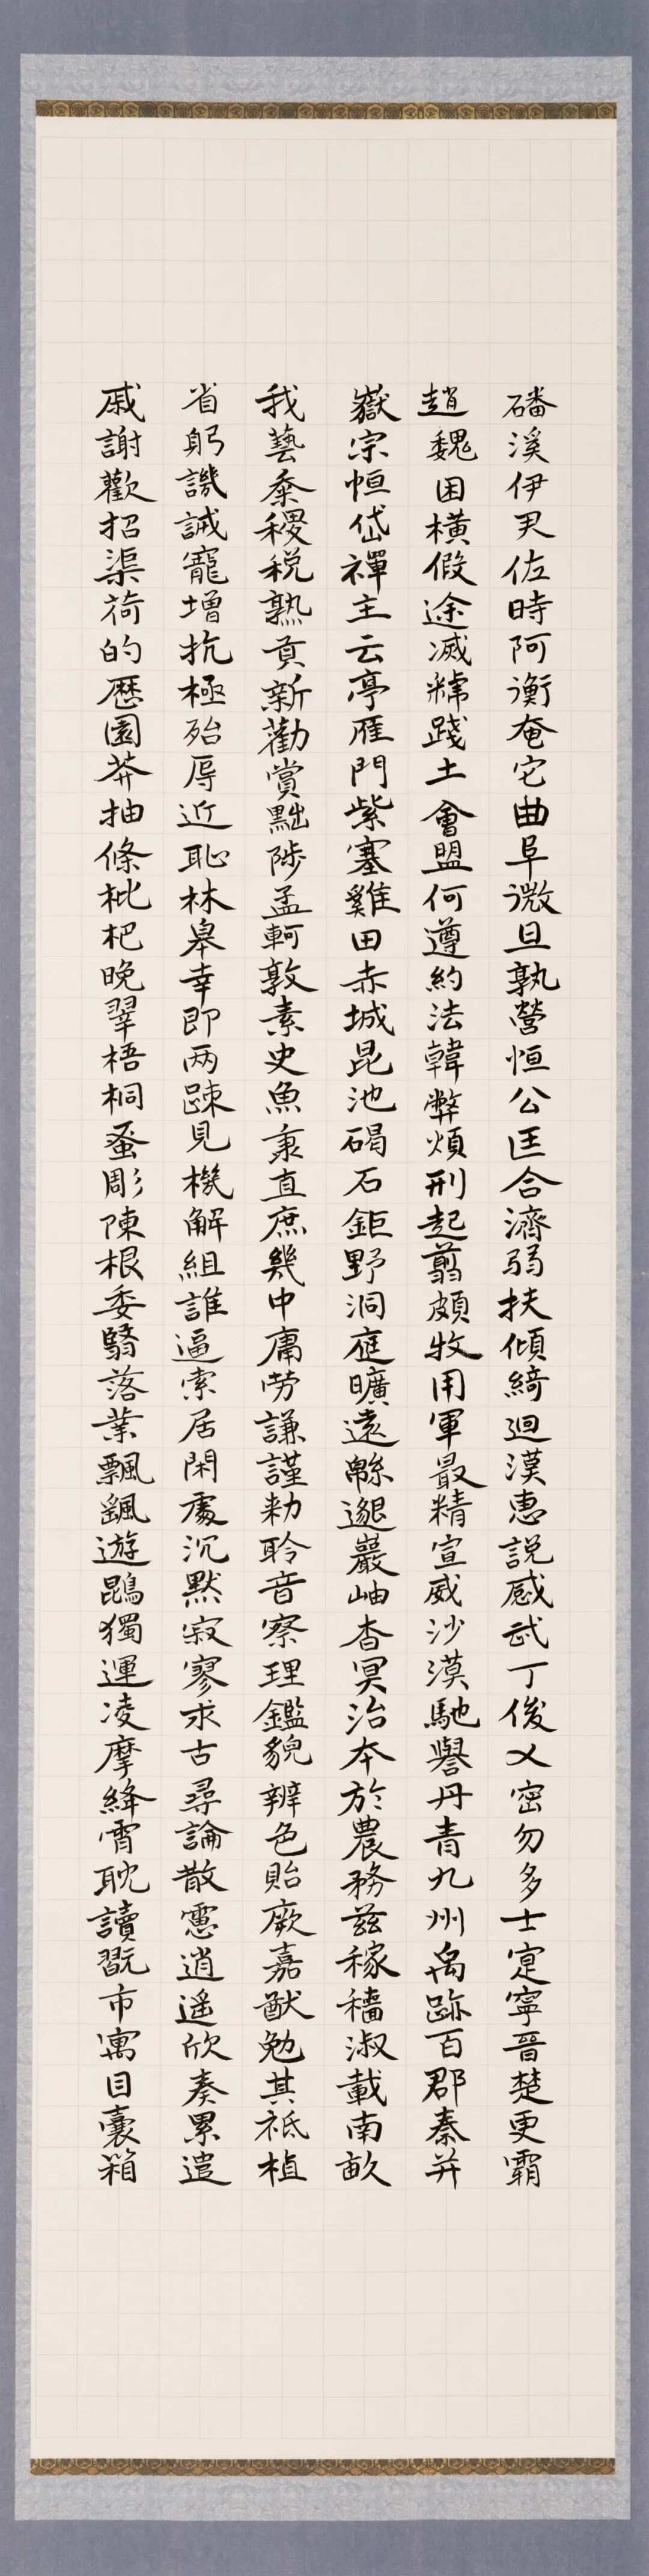 磻溪伊尹佐時阿衡奄宅曲阜微旦孰營恒公匡合濟弱扶傾綺迴漢惠説感武丁俊乂密勿多士寔寧晉楚更霸
趙魏困橫假途滅虢踐土會盟何遵約法韓弊煩刑起翦頗牧用軍最精宣威沙漠馳譽丹青九州禹跡百郡秦并
嶽宗恒岱禪主云亭雁門紫塞雞田赤城昆池碣石鉅野洞庭曠遠緜邈巖岫杳冥治本於農務茲稼穡淑載南畝
我藝黍稷税熟貢新勸賞黜陟孟軻敦素史魚秉直庶幾中庸勞謙謹勑聆音察理鑑貌辨色貽厥嘉猷勉其祗植
省躬譏誡寵增抗極殆辱近恥林皋幸即両疎見機解組誰逼索居閑處沉默寂寥求古尋論散慮逍遥欣奏累遣
慼謝歡招渠荷的歷園莽抽條枇杷晚翠梧桐蚤彫陳根委翳落葉飄颻遊鵾獨運凌摩絳霄耽讀翫市寓目囊箱